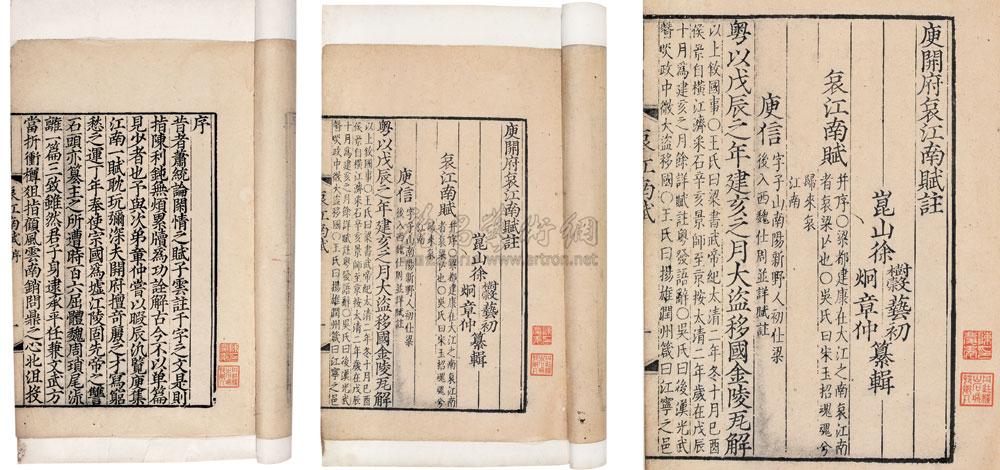 序
昔者蕭統論閒情之賦子雲註千字之文是則
指陳利鈍無煩累牘為功詮解古今不以單篇
見少者也予與次弟章仲嘗以暇辰沉覽庾集
江南一賦耽玩彌深夫開府擅奇麗之才寫窮
愁之運丁年奉使宗國為墟江陵固先帝之讐
石頭亦纂主之所遭時百六屈體魏周瑣尾流
離一篇三致雖然君子身逮承平任兼文武方
當折衝樽俎指顧風雲南銷問鼎之心北沮投
哀江南賦 序
庾開府哀江南賦註
崑山徐樹穀藝初
炯章仲
纂輯
哀江南賦 并序○梁都建康在大江之南哀江南
者哀梁亡也○吳氏曰宋玉招魂魂兮
歸來哀
江南
庾信 字子山南陽新野人初仕梁
後入西魏仕周並詳賦註
粵以戊辰之年建亥之月大盜移國金陵瓦解
以上敘國事○王氏曰梁書武帝紀太清二年冬十月己酉
候景自橫江濟采石辛亥景師至京按太清二年歲在戊辰
十月為建亥之月餘詳賦註粵發語辭○吳氏曰後漢光武
贊炎政中微大盜移國○王氏曰揚雄潤州箴曰江寧之邑
哀江南賦
雅昌藝術網
www.artron.net
庾開府哀江南賦註
崑山徐樹穀藝初
炯章仲
纂輯
哀江南賦 并序○梁都建康在大江之南哀江南
者哀梁亡也○吳氏曰宋玉招魂魂兮
歸來哀
江南
庾信 字子山南陽新野人初仕梁
後入西魏仕周並詳賦註
粵以戊辰之年建亥之月大盜移國金陵瓦解
以上敘國事○王氏曰梁書武帝紀太清二年冬十月己酉
候景自橫江濟采石辛亥景師至京按太清二年歲在戊辰
十月為建亥之月餘詳賦註粵發語辭○吳氏曰後漢光武
贊炎政中微大盜移國○王氏曰揚雄潤州箴曰江寧之邑
哀江南賦